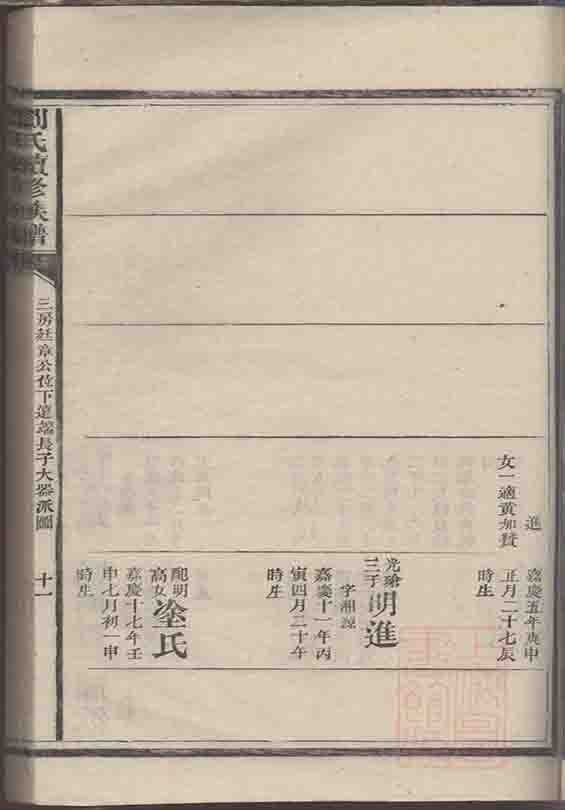 進
女一適黃如賛
嘉慶五年庚申
正月二十七辰
時生
光瑲三子
明進
字湘源
嘉慶十一年丙
寅四月二十午
時生
配明高女
塗氏
嘉慶十七年壬
申七月初一申
時生
劉氏續修族譜
三房廷章公位下蓮端長子大器派圖
十一